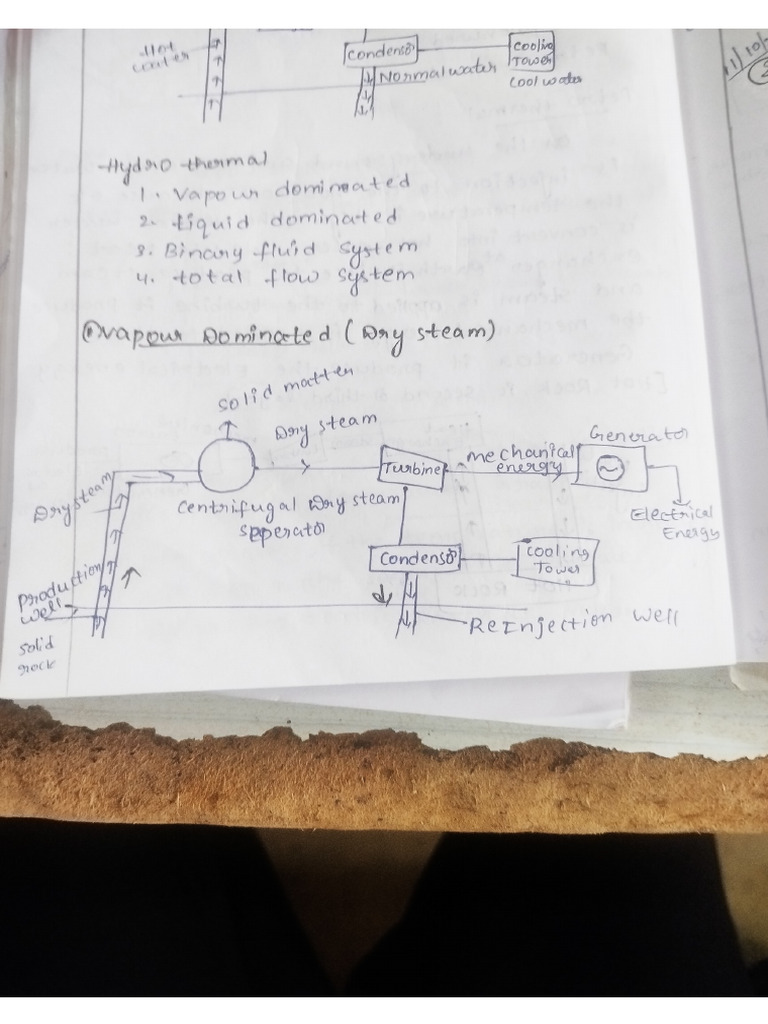 Hot
water
Condensor
Normal water
Cooling
Tower
Cool water
11/10/
Hydro thermal
1. Vapour dominated
2. Liquid dominated
3. Binary fluid system
4. total flow system
Vapour Dominated (Dry steam)
Solid matter
Dry steam
Turbine
mechanical
energy
Generator
Dry steam
Centrifugal Dry steam
Seperator
Electrical
Energy
Condensor
Cooling
Tower
Production
well
ReInjection well
Solid
rock